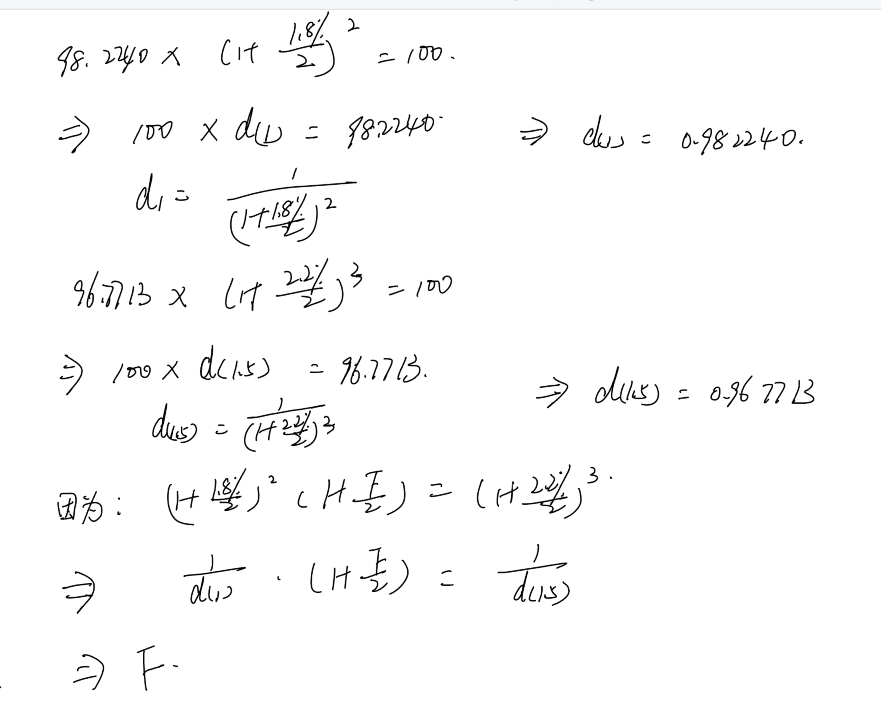 98.2240 × (1+ 1.8%/2)^2 = 100.
⇒ 100 × d(1) = 98.2240. ⇒ d(1) = 0.982240.
d1 = 1/(1+1.8%/2)^2
96.7713 × (1+ 2.2%/2)^3 = 100
⇒ 100 × d(1.5) = 96.7713. ⇒ d(1.5) = 0.967713
d(1.5) = 1/(1+2.2%/2)^3
因为: (1+ 1.8%/2)^2 (1+F/2) = (1+2.2%/2)^3.
⇒ 1/d(1) · (1+F/2) = 1/d(1.5)
⇒ F.